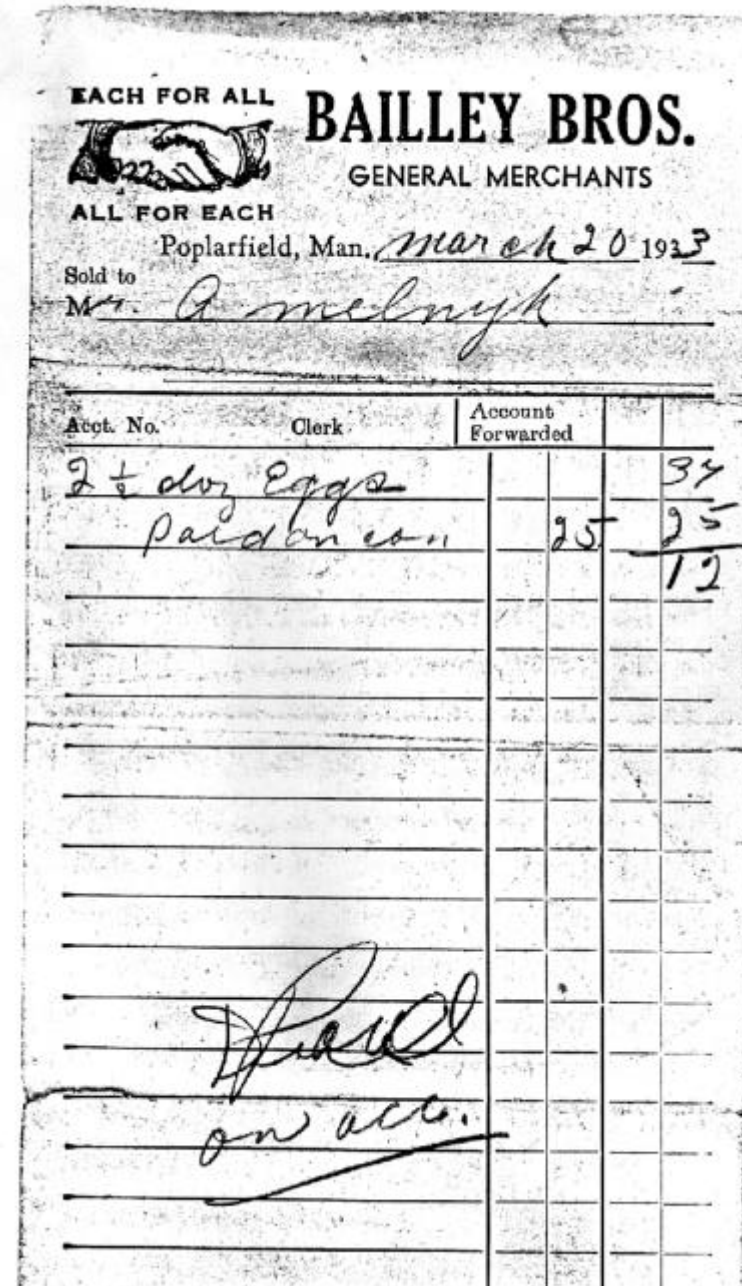 EACH FOR ALL
BAILLEY BROS.
GENERAL MERCHANTS
ALL FOR EACH
Poplarfield, Man., March 20 1933
Sold to
Mr. A Melnyk
Acct. No. Clerk Account Forwarded
2 ½ doz Eggs 37
Paid on acc 25 25
12
Paid
on acc.